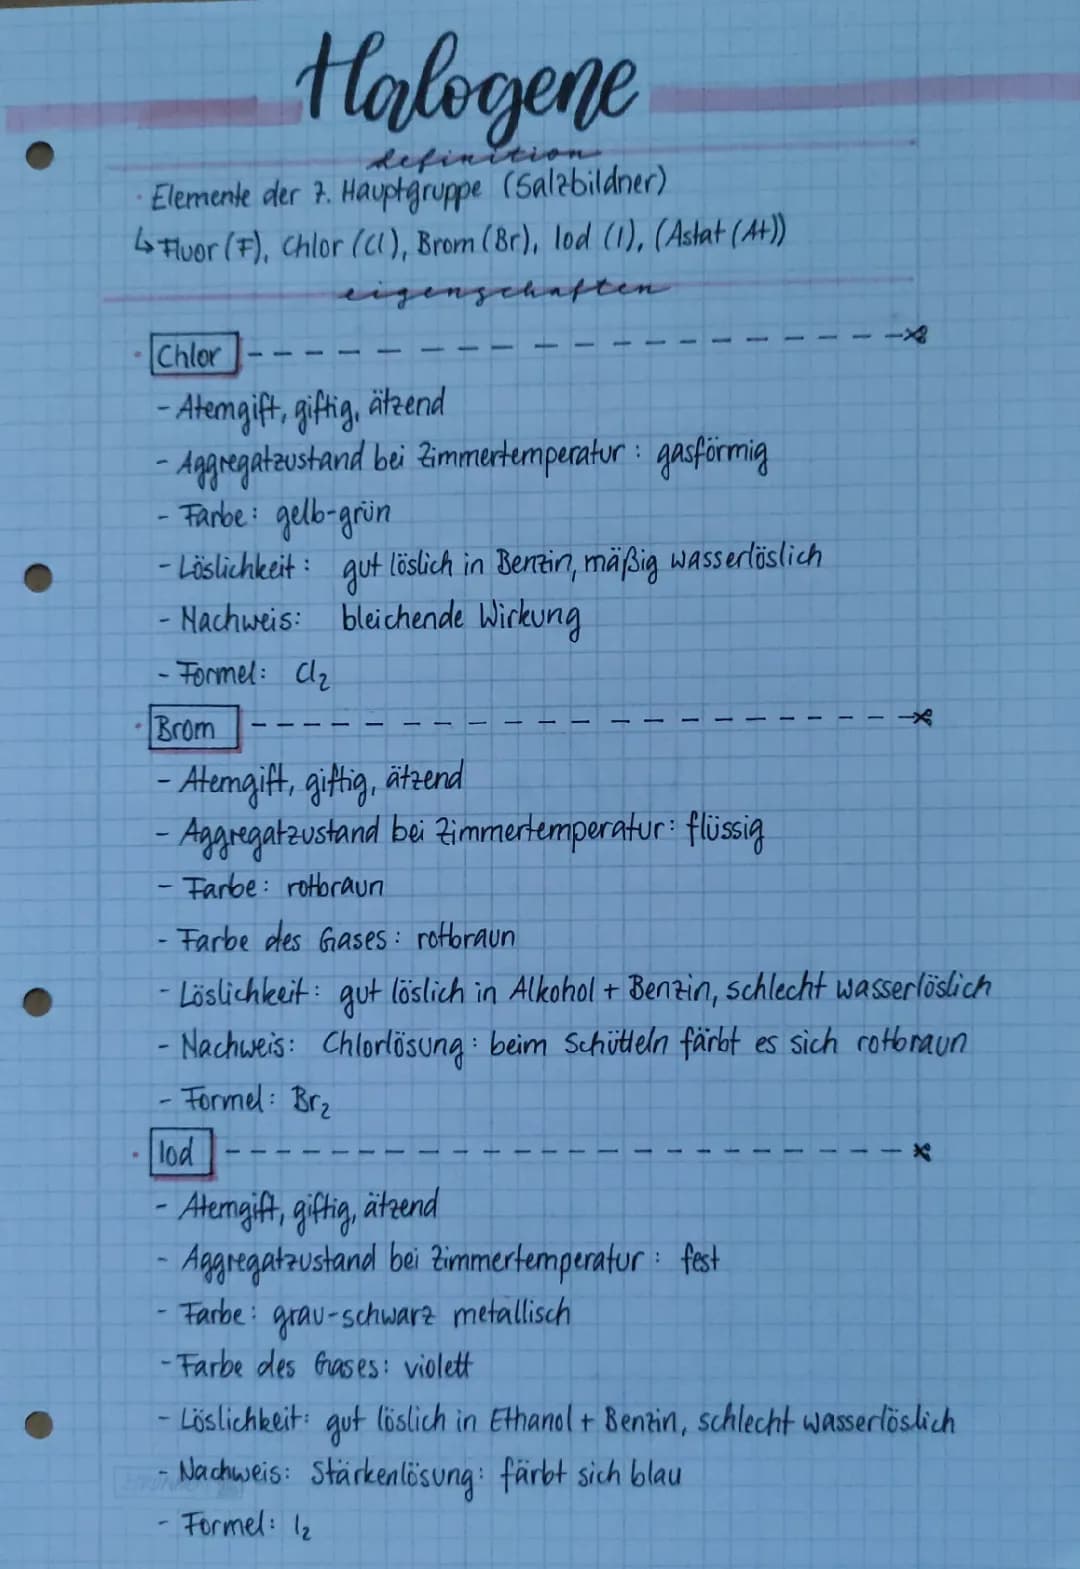 Halogene
definition
· Elemente der 7. Hauptgruppe (Salzbildner)
↳ Fluor (F), Chlor (Cl), Brom (Br), Iod (I), (Astat (At))
eigenschaften
· Chlor
- Atemgift, giftig, ätzend
- Aggregatzustand bei Zimmertemperatur: gasförmig
- Farbe: gelb-grün
- Löslichkeit: gut löslich in Benzin, mäßig wasserlöslich
- Nachweis: bleichende Wirkung
- Formel: Cl₂
· Brom
- Atemgift, giftig, ätzend
- Aggregatzustand bei Zimmertemperatur: flüssig
- Farbe: rotbraun
- Farbe des Gases: rotbraun
- Löslichkeit: gut löslich in Alkohol + Benzin, schlecht wasserlöslich
- Nachweis: Chlorlösung: beim Schütteln färbt es sich rotbraun
- Formel: Br₂
· Iod
- Atemgift, giftig, ätzend
- Aggregatzustand bei Zimmertemperatur: fest
- Farbe: grau-schwarz metallisch
- Farbe des Gases: violett
- Löslichkeit: gut löslich in Ethanol + Benzin, schlecht wasserlöslich
- Nachweis: Stärkenlösung: färbt sich blau
- Formel: I₂